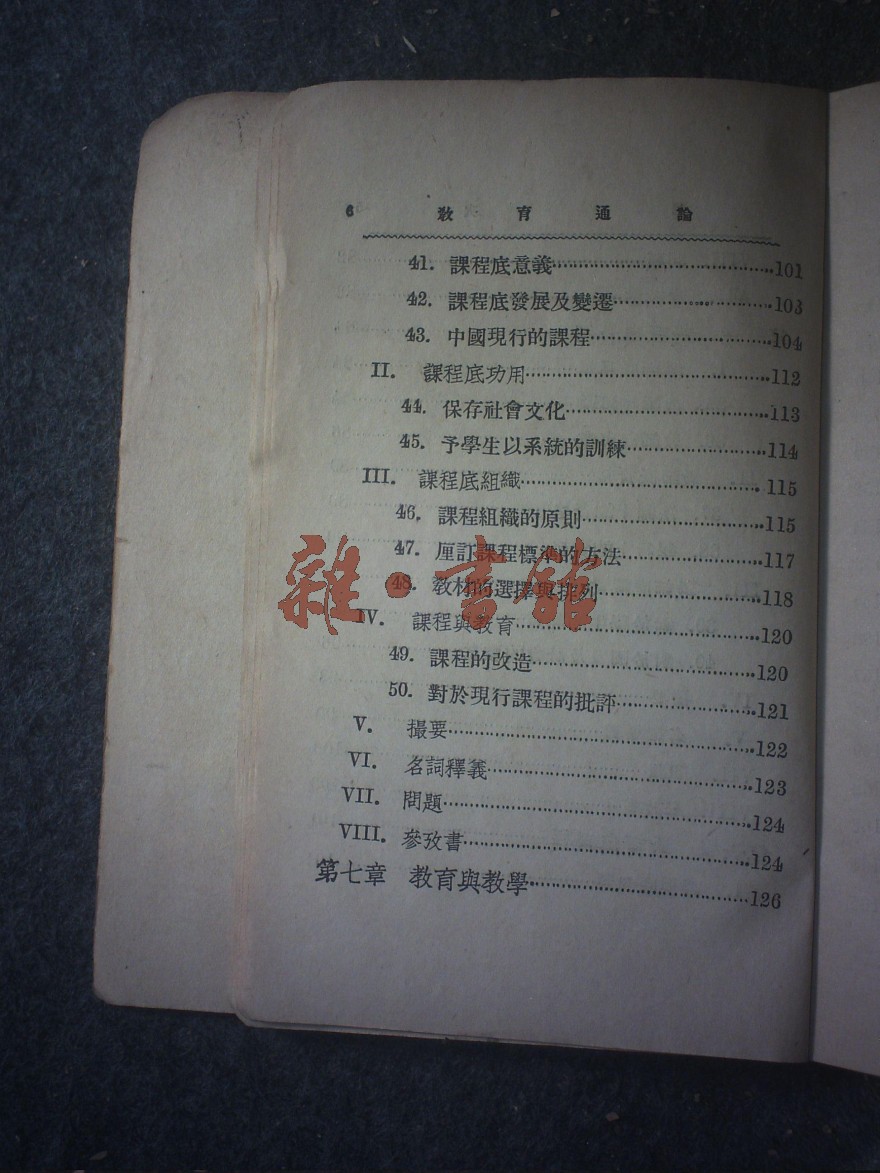 6 教育通論
41. 課程底意義 101
42. 課程底發展及變遷 103
43. 中國現行的課程 104
II. 課程底功用 112
44. 保存社會文化 113
45. 予學生以系統的訓練 114
III. 課程底組織 115
46. 課程組織的原則 115
47. 厘訂課程標準的方法 117
48. 教材的選擇與排列 118
IV. 課程與教育 120
49. 課程的改造 120
50. 對於現行課程的批評 121
V. 撮要 122
VI. 名詞釋義 123
VII. 問題 124
VIII. 參攷書 124
第七章 教育與教學 126
雜·書館